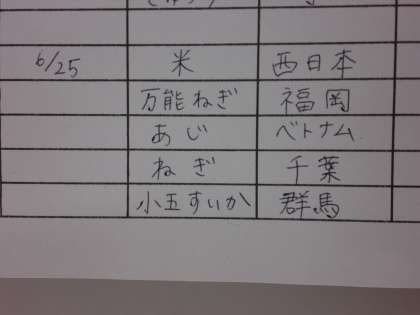 6/25 米 西日本
万能ねぎ 福岡
あじ ベトナム
ねぎ 千葉
小玉すいか 群馬